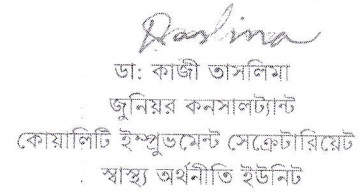 Taslima
ডা: কাজী তাসলিমা
জুনিয়র কনসালট্যান্ট
কোয়ালিটি ইম্প্রুভমেন্ট সেক্রেটারিয়েট
স্বাস্থ্য অর্থনীতি ইউনিট